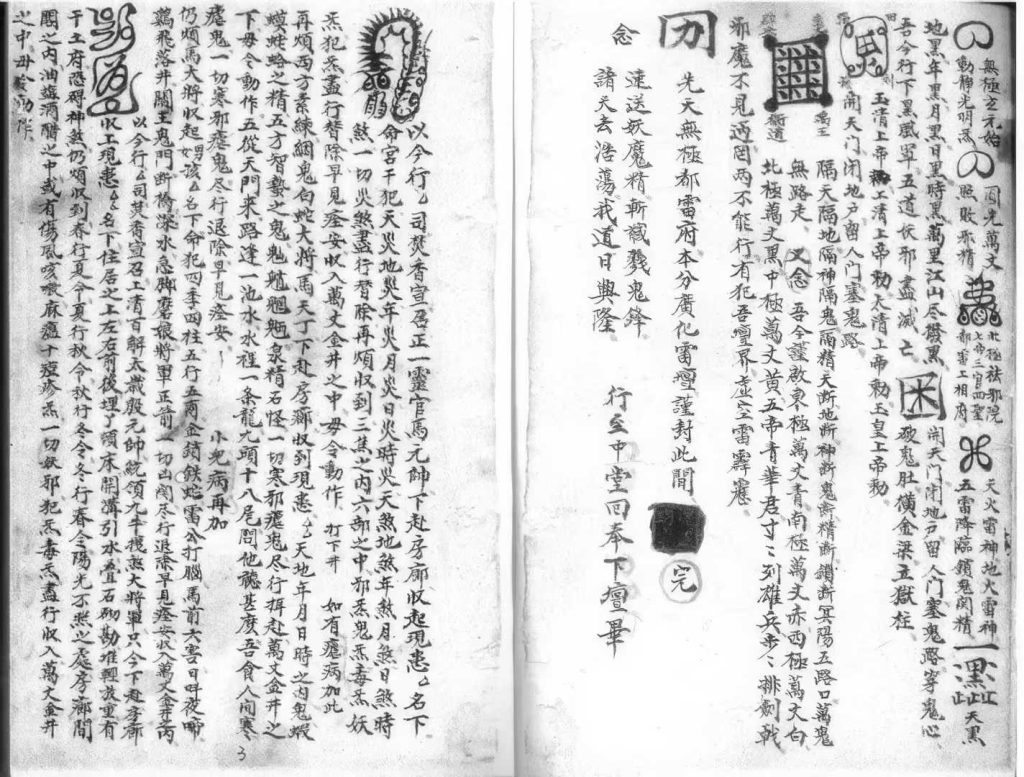 無極玄元始
動靜光明為
圓光萬丈
照敗邪精
北極祛邪院
七帝三官四聖
都案工相府
天火雷神地火雷神
五雷降臨鎖鬼関精
天黑
地黑年黑月黑日黑時黑萬里江山尽撥黑
開天門閉地户留人門塞鬼路穿鬼心
吾今行下黑風軍五道伏邪盡滅亡
破鬼肚橫金梁立獄柱
玉清上帝勑上清上帝勅太清上帝勅玉皇上帝勅
開天門閉地户留人門塞鬼路
隔天隔地隔神隔鬼隔精天断地断神断鬼断精断鎖断冥陽五路口萬鬼
無路走 又念 吾今謹啟東極萬丈青南極萬丈赤西極萬丈白
北極萬丈黑中極萬丈黄五帝青華君寸〻列雄兵步〻排劍戟
邪魔不見迹罔兩不能行有犯吾壇界虚空雷霹靂
先天無極都雷府本分廣化雷壇謹封此間
完
念
速送妖魔精斬馘戮鬼鋒
諸天去浩蕩我道日興隆
行至中堂回奉下壇畢
以今行厶司焚香宣召正一靈官馬元帥下赴房廊收起現患厶名下
命宮干犯天火地火年火月火日火時火天煞地煞年煞月煞日煞時
煞一切火煞盡行替除再煩收到三焦之内六部之中邪炁鬼炁毒炁妖
炁犯炁盡行替除早見痊安收入萬丈金井之中毋令動作 打下井 如有瘧病加此
再煩西方素練綑鬼白蛇大將馬天丁下赴房廊收到現患厶天地年月日時之内鬼蝦
蟆蛇蛤之精五方智蟄之鬼 泉精石怪一切寒邪瘧鬼尽行押赴萬丈金井之
下毋令動作五從天門来路逢一池水水裡一条龍九頭十八尾問他聽甚庅吾食人间寒
瘧鬼一切寒邪瘧鬼尽行退除早見痊安 小児病再加
仍煩馬大將收起男女孩厶名下命犯四季四柱五行五両金鎖鉄蛇雷公打腦馬前六害日呌夜啼
鷄飛落井関王鬼門断橋深水急脚磨娘將軍正前一切凶関尽行退除早見痊安收入萬丈金井之内
以今行厶司焚香宣召上清百解太歲殷元帥統領九千 大將軍只今下赴房廊
收上現患厶名下住居之上左右前後埋丁頃床開溝引水 石砌勘堆輕放重有
干土府恐碍神煞仍煩收到春行夏令夏行秋令秋行冬令冬行春令陽光不照之處房廊間
閣之内油 酒醋之中或有傷風咳嗽麻痘十痘疹炁一切妖邪犯炁毒炁盡行收入萬丈金井
之中毋 動作
3